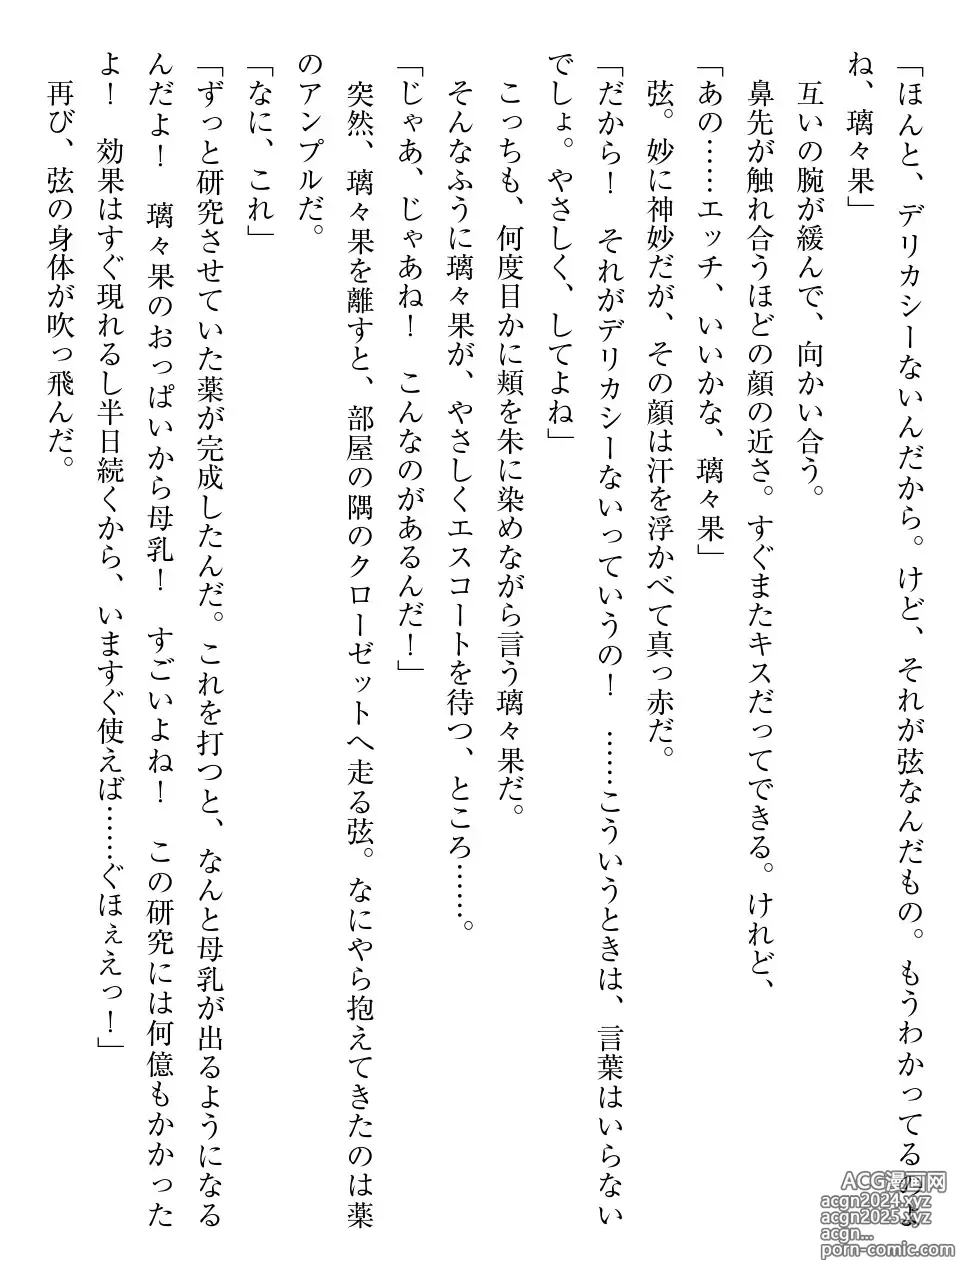 「ほんと、デリカシーないんだから。けど、それが弦なんだもの。もうわかってるのよ
ね、璃々果」
互いの腕が緩んで、向かい合う。
鼻先が触れ合うほどの顔の近さ。すぐまたキスだってできる。けれど、
「あの……エッチ、いいかな、璃々果」
弦。妙に神妙だが、その顔は汗を浮かべて真っ赤だ。
「だから！　それがデリカシーないっていうの！　……こういうときは、言葉はいらない
でしょ。やさしく、してよね」
こっちも、何度目かに頬を朱に染めながら言う璃々果だ。
そんなふうに璃々果が、やさしくエスコートを待つ、ところ……。
「じゃあ、じゃあね！　こんなのがあるんだ！」
突然、璃々果を離すと、部屋の隅のクローゼットへ走る弦。なにやら抱えてきたのは薬
のアンプルだ。
「なに、これ」
「ずっと研究させていた薬が完成したんだ。これを打つと、なんと母乳が出るようになる
んだよ！　璃々果のおっぱいから母乳！　すごいよね！　この研究には何億もかかった
よ！　効果はすぐ現れるし半日続くから、いますぐ使えば……ぐほぇえっ！」
再び、弦の身体が吹っ飛んだ。
ACG漫画网
acgn2024.xyz
acgn2025.xyz
acgn...
porn-comic.com